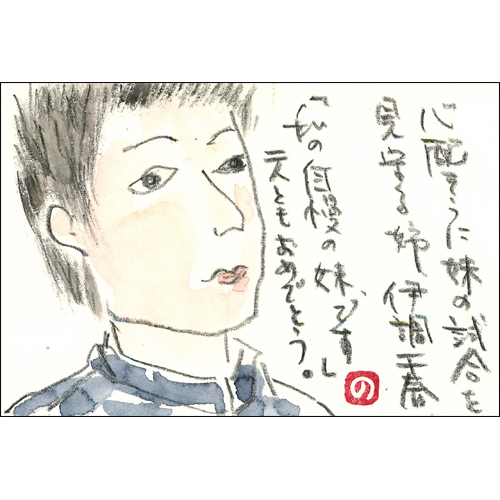 心配そうに妹の試合を
見守る姉 伊調千春
「私の自慢の妹です」
二人ともおめでとう。
の